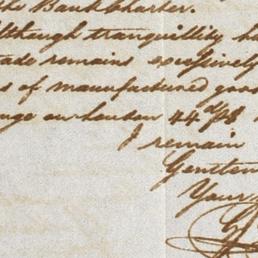 the Bank Charter.
Although tranquillity ha
ade remains excessively
s of manufactured goo
nge on London 44
I remain
Gentlem
Your